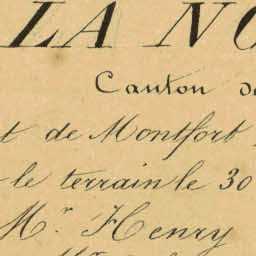 LA NO
Canton de
t de Montfort
le terrain le 30
Mr Henry